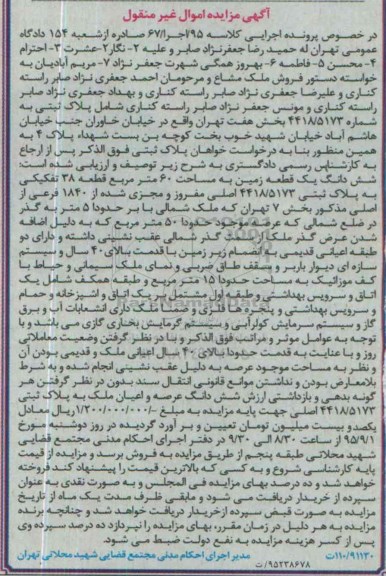 آگهی مزایده اموال غیر منقول
در خصوص پرونده اجرایی کلاسه ۹۵/اجرا/۶۷ صادره ازشعبه ۱۵۴ دادگاه
عمومی تهران له حمید رضا جعفرنژاد صابر و علیه ۲- نگار۲-عشرت ۳- احترام
۴- محسن ۵-فاطمه ۶- بهروز همگی شهرت جعفر نژاد ۷- مریم آبادیان به
خواسته دستور فروش ملک مشاع و مرحومان احمد جعفری نژاد صابر راسته
کناری و علیرضا جعفری نژاد صابر راسته کناری و بهداد جعفری نژاد صابر
راسته کناری و مونس جعفر نژاد صابر راسته کناری شامل پلاک ثبتی به
شماره ۴۴۱۸/۵۱۷۳ بخش هفت تهران واقع در خیابان خاوران جنب خیابان
هاشم آباد خیابان شهید خوب بخت کوچه بن بست شهداء پلاک ۴ به
همین منظور بنا به درخواست خواهان پلاک ثبتی فوق الذکر پس از ارجاع
به کارشناس رسمی دادگستری به شرح زیر توصیف و ارزیابی شده است:
شش دانگ یک قطعه زمین به مساحت ۶۰ متر مربع قطعه ۳۸ تفکیکی
به پلاک ثبتی ۴۴۱۸/۵۱۷۳ اصلی مفروز و مجزی شده از ۱۸۴۰ فرعی از
اصلی مذکور بخش ۷ تهران که ملک شمالی با بر حدودا ۵ متر به گذر
در ضلع شمالی که عرصه موجود حدودا ۵۰ متر مربع که به دلیل اضافه
شدن عرض گذر ملک از سمت گذر شمالی عقب نشینی داشته و دارای دو
طبقه اعیانی قدیمی به انضمام زیر زمین با قدمت بالای ۴۰ سال و سیستم
سازه ای دیوار باربر و سقف طاق ضربی و نمای ملک سیمانی و حیاط با
کف موزائیک به مساحت حدودا ۱۵ متر مربع و طبقه همکف شامل یک
اتاق و سرویس بهداشتی و طبقه اول مشتمل بر یک اتاق و آشپزخانه و حمام
و سرویس بهداشتی و پنجره ها فلزی و ضمنا ملک داری انشعابات آب و برق
گاز و سیستم سرمایش کولرآبی و سیستم گرمایش بخاری گازی می باشد و با
توجه به عوامل موثر و مراتب فوق الذکر و با در نظر گرفتن وضعیت معاملاتی
روز و با عنایت به قدمت حدودا بالای ۴۰ سال اعیانی ملک و قدیمی بودن آن
و نظر به مساحت موجود عرصه به دلیل عقب نشینی انجام شده و به شرط
بلامعارض بودن و نداشتن موانع قانونی انتقال سند بدون در نظر گرفتن هر
گونه بدهی و بازداشتی ارزش شش دانگ عرصه و اعیان ملک به پلاک ثبتی
۴۴۱۸/۵۱۷۳ اصلی جهت پایه مزایده به مبلغ -/۱/۲۰۰/۰۰۰/۰۰۰ ریال معادل
یکصد و بیست میلیون تومان تعیین و بر آورد گردیده در روز دوشنبه مورخ
۹۵/۹/۱ از ساعت ۸/۳۰ الی ۹/۳۰ در دفتر اجرای احکام مدنی مجتمع قضایی
شهید محلاتی طبقه پنجم از طریق مزایده به فروش برسد و مزایده از قیمت
پایه کارشناسی شروع و به کسی که بالاترین قیمت را پیشنهاد کند فروخته
خواهد شد و ده درصد بهای مزایده فی المجلس و به صورت نقدی به عنوان
سپرده از خریدار دریافت می شود و مابقی ظرف مدت یک ماه از تاریخ
مزایده به صورت قبض سپرده ازخریدار دریافت خواهد شد و چنانچه برنده
مزایده به هر دلیل در زمان مقرر، بهای مزایده را نپردازد ده درصد سپرده وی
پس از کسر هزینه مزایده به نفع دولت ضبط می شود.
۱۱۰/۹۱۱۳۰ت مدیر اجرای احکام مدنی مجتمع قضایی شهید محلاتی تهران
۹۵۲۳۸۶۷۸/ت